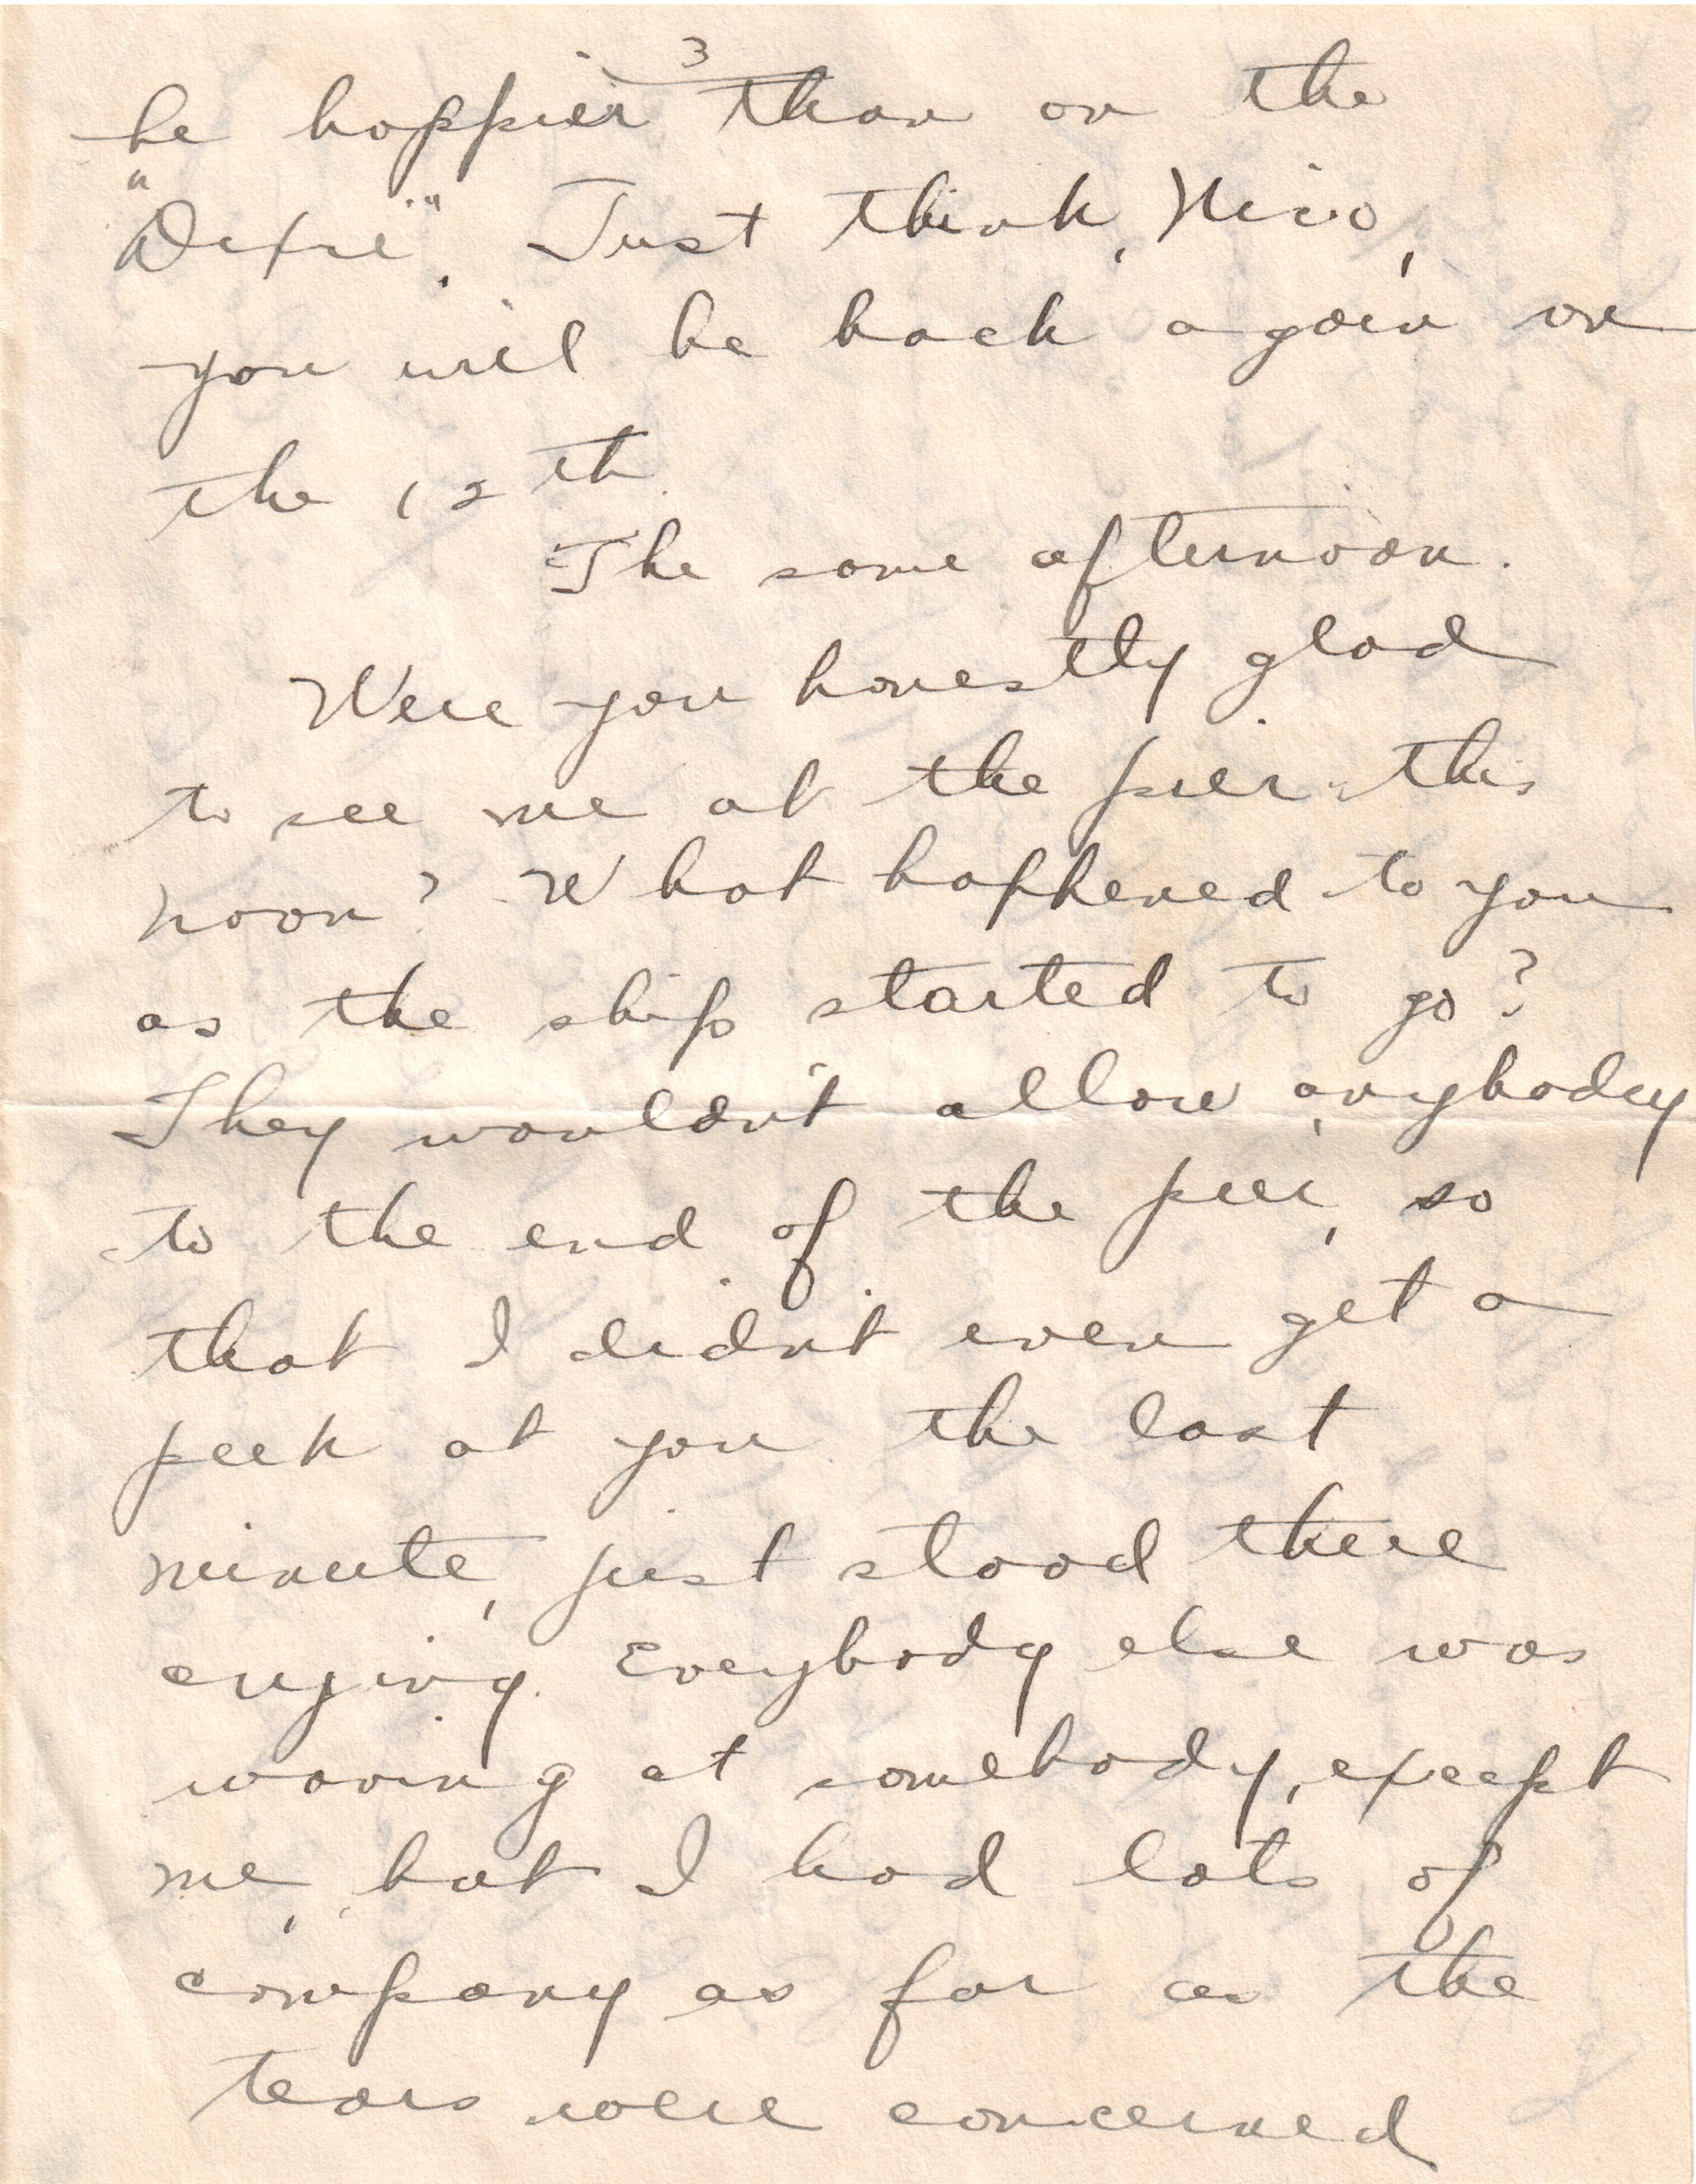 3
be happier than on the
"Dixie". Just think, Nino,
you will be back again on
the 12th.
The same afternoon.
Were you honestly glad
to see me at the pier this
noon? What happened to you
as the ship started to go?
They wouldn't allow anybody
to the end of the pier, so
that I didn't even get a
peek at you the last
minute, just stood there
crying. Everybody else was
waving at somebody, except
me, but I had lots of
company as far as the
tears were concerned